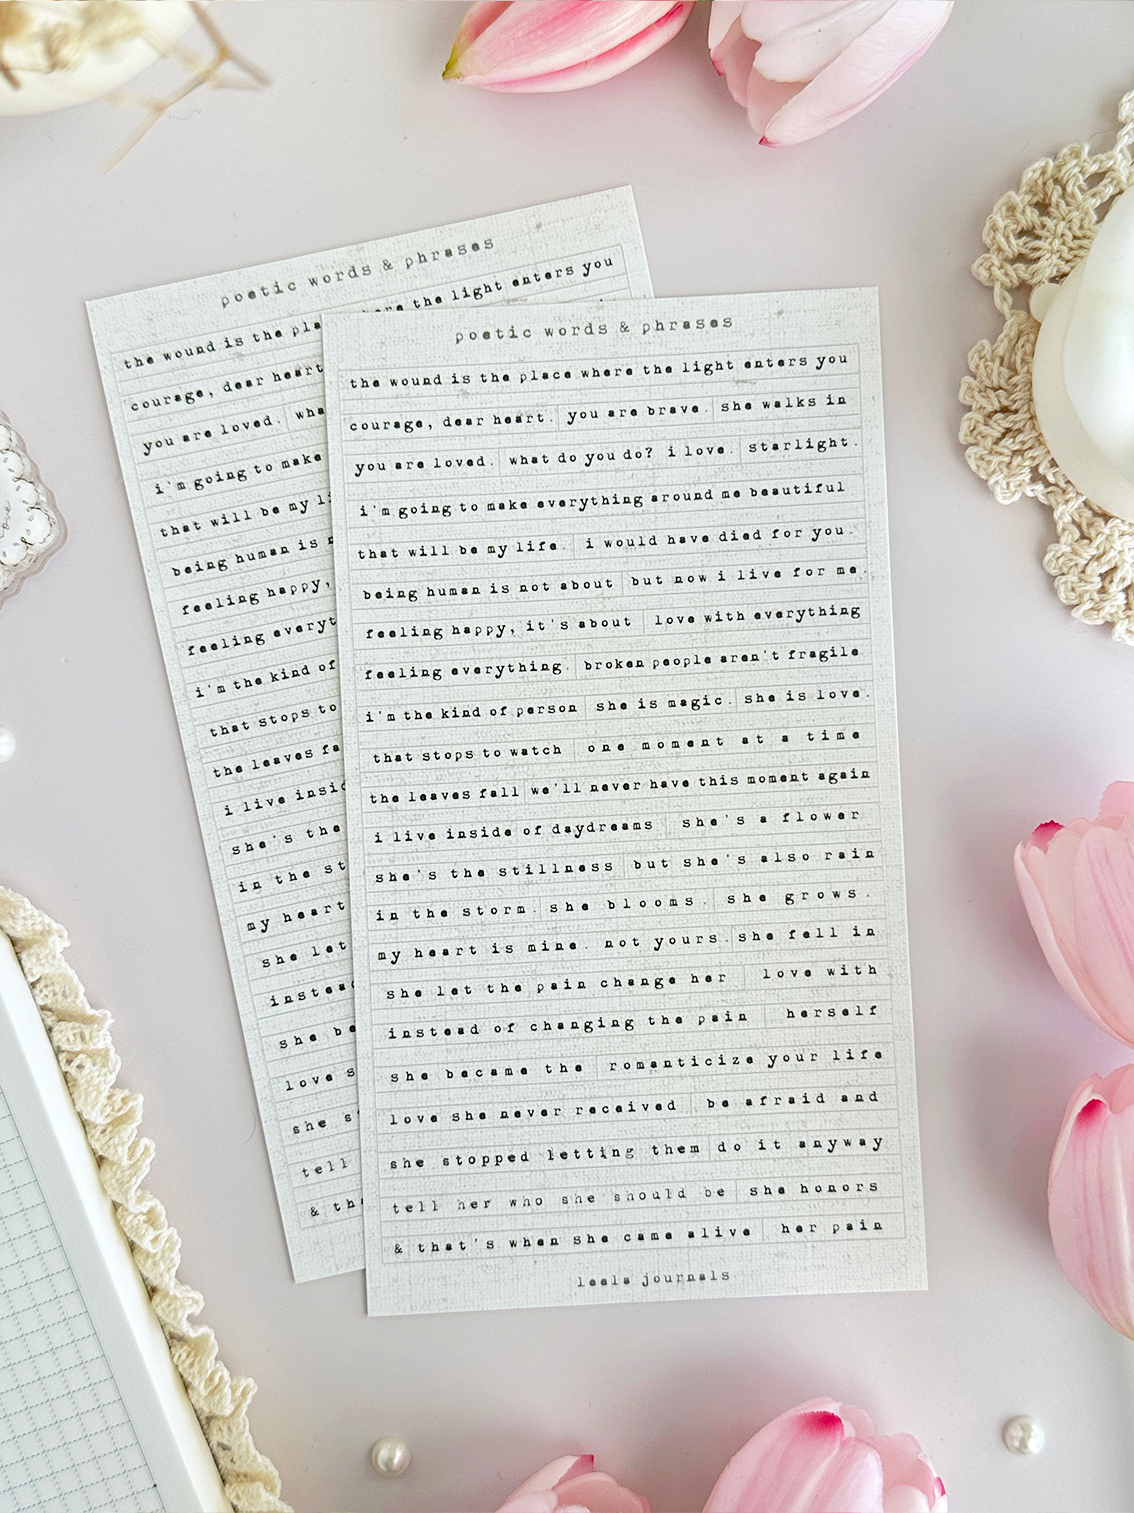 poetic words & phrases
the wound is the pla
here the light enters you
courage, dear heart
you are loved. wha
i'm going to make
that will be my li
being human is n
feeling happy,
feeling everyt
i'm the kind of
that stops to
the leaves fa
i live insid
she's the
in the st
my heart
she let
instead
she be
love s
she s
tell
& tha
poetic words & phrases
the wound is the place where the light enters you
courage, dear heart. you are brave. she walks in
you are loved. what do you do? i love. starlight.
i'm going to make everything around me beautiful
that will be my life. i would have died for you.
being human is not about but now i live for me.
feeling happy, it's about love with everything
feeling everything. broken people aren't fragile
i'm the kind of person she is magic. she is love.
that stops to watch one moment at a time
the leaves fall we'll never have this moment again
i live inside of daydreams she's a flower
she's the stillness but she's also rain
in the storm. she blooms. she grows.
my heart is mine. not yours. she fell in
she let the pain change her love with
instead of changing the pain herself
she became the romanticize your life
love she never received be afraid and
she stopped letting them do it anyway
tell her who she should be she honors
& that's when she came alive her pain
leela journals